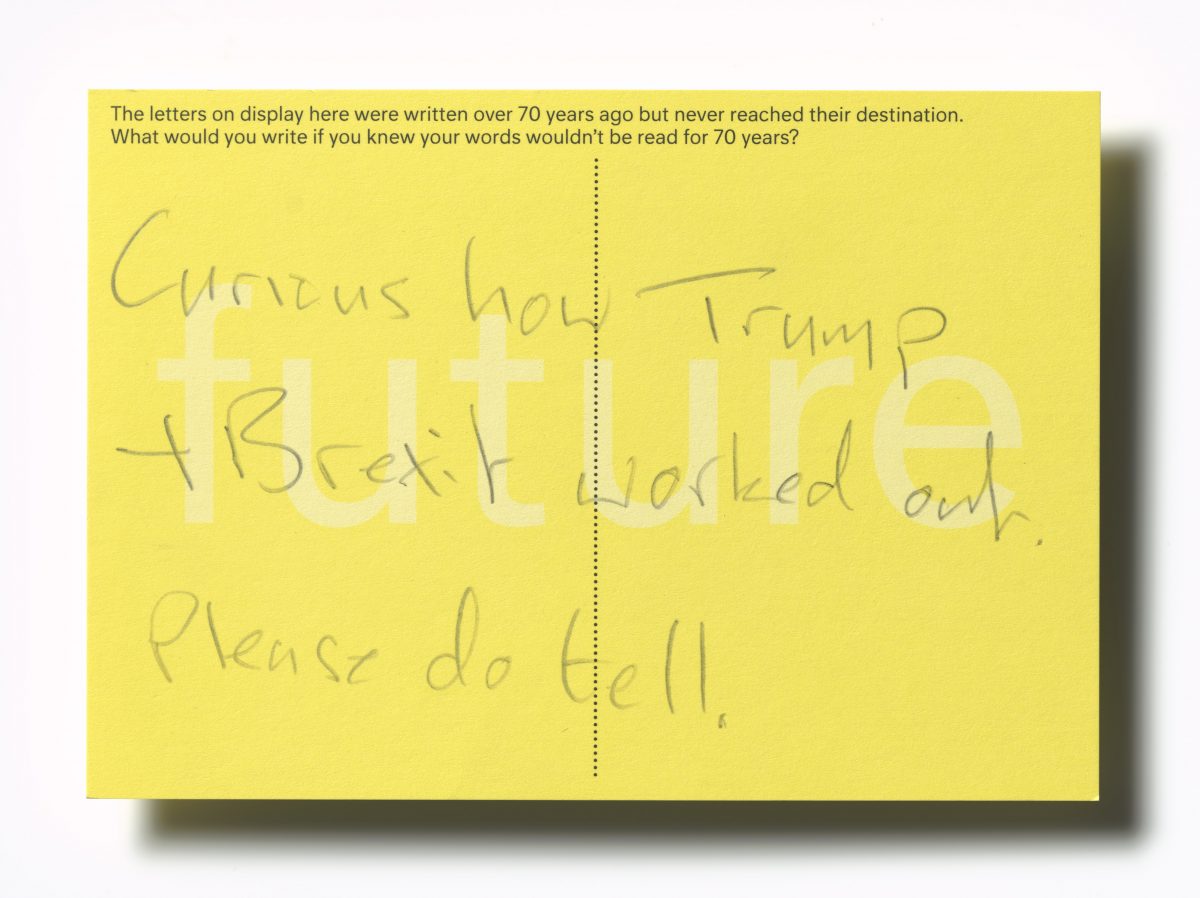 The letters on display here were written over 70 years ago but never reached their destination.
What would you write if you knew your words wouldn't be read for 70 years?
future
Curious how Trump
+ Brexit worked out.
Please do tell.